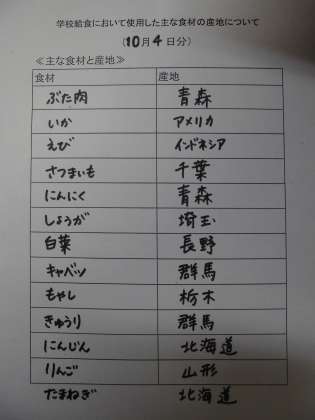 学校給食において使用した主な食材の産地について
(10月4日分)
≪主な食材と産地≫
食材 産地
ぶた肉 青森
いか アメリカ
えび インドネシア
さつまいも 千葉
にんにく 青森
しょうが 埼玉
白菜 長野
キャベツ 群馬
もやし 栃木
きゅうり 群馬
にんじん 北海道
りんご 山形
たまねぎ 北海道